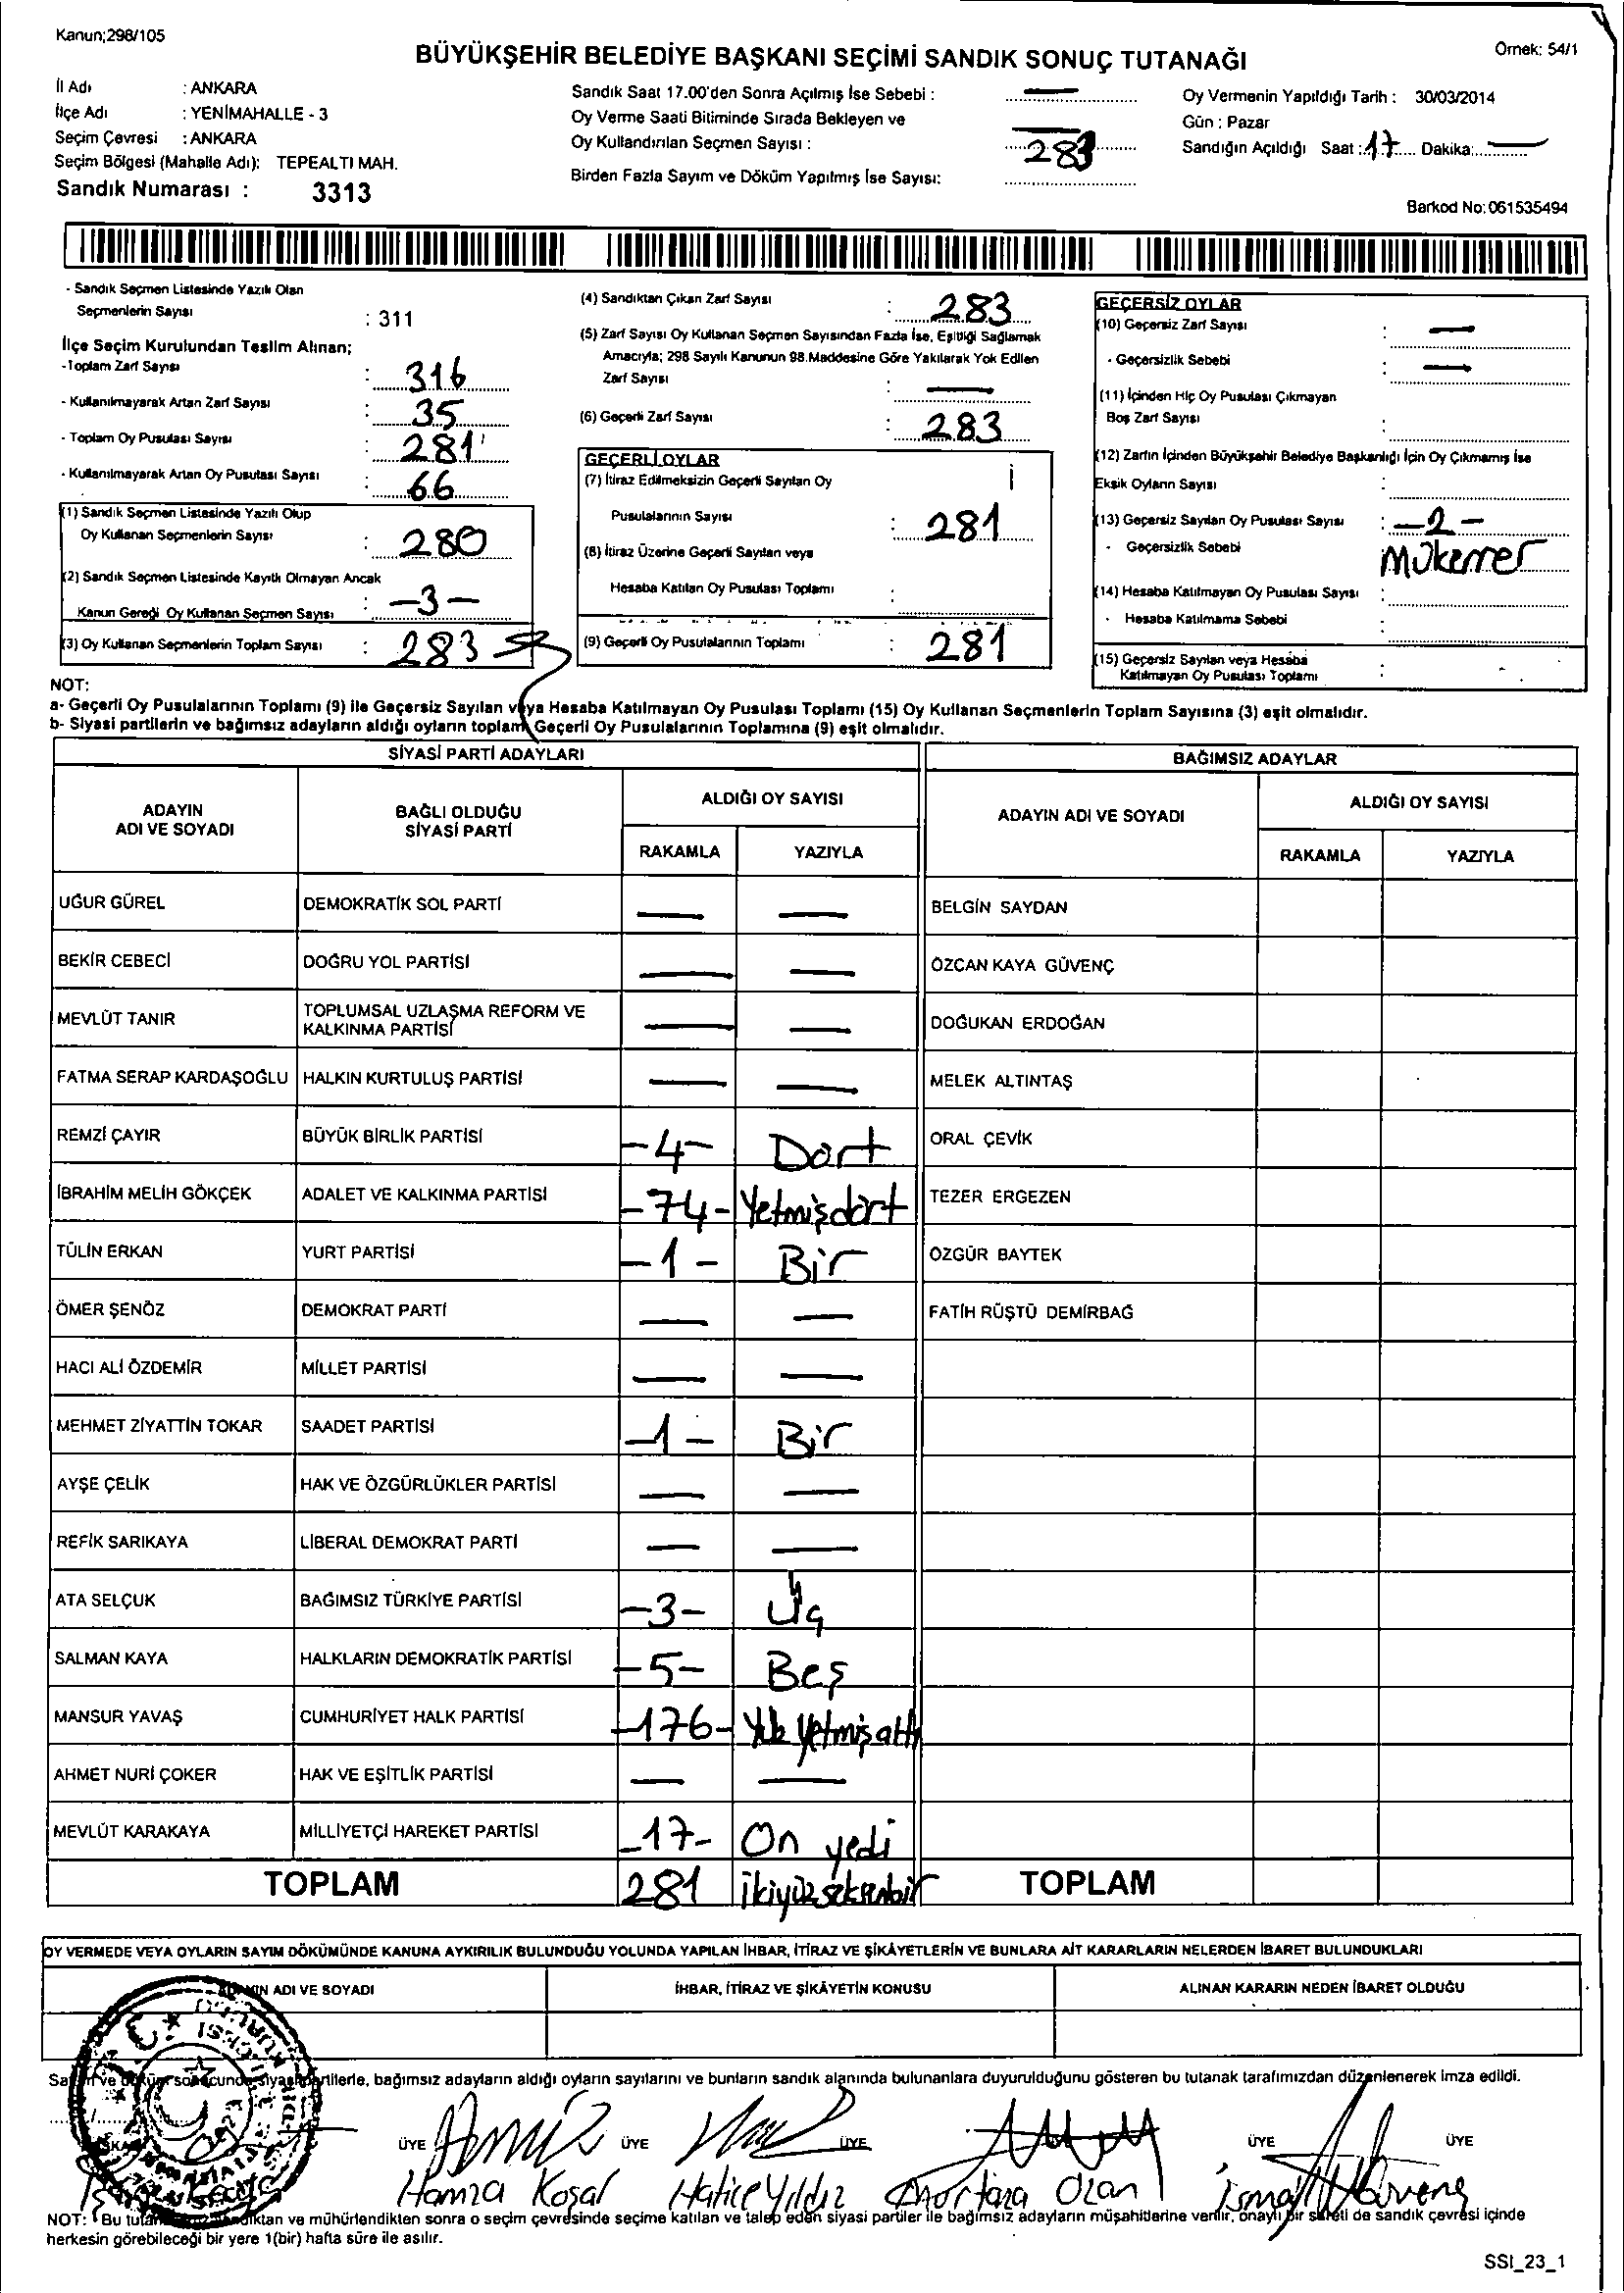 Kanun;298/105
BÜYÜKŞEHİR BELEDİYE BAŞKANI SEÇİMİ SANDIK SONUÇ TUTANAĞI
Örnek: 54/1
İl Adı : ANKARA
İlçe Adı : YENİMAHALLE - 3
Seçim Çevresi : ANKARA
Seçim Bölgesi (Mahalle Adı): TEPEALTI MAH.
Sandık Numarası : 3313
Sandık Saat 17.00'den Sonra Açılmış İse Sebebi : —
Oy Verme Saati Bitiminde Sırada Bekleyen ve
Oy Kullandırılan Seçmen Sayısı : 283
Birden Fazla Sayım ve Döküm Yapılmış İse Sayısı:
Oy Vermenin Yapıldığı Tarih : 30/03/2014
Gün : Pazar
Sandığın Açıldığı Saat : 17 Dakika: —
Barkod No: 061535494
- Sandık Seçmen Listesinde Yazılı Olan
Seçmenlerin Sayısı : 311
İlçe Seçim Kurulundan Teslim Alınan;
-Toplam Zarf Sayısı : 316
- Kullanılmayarak Artan Zarf Sayısı : 35
- Toplam Oy Pusulası Sayısı : 281
- Kullanılmayarak Artan Oy Pusulası Sayısı : 66
(1) Sandık Seçmen Listesinde Yazılı Olup
Oy Kullanan Seçmenlerin Sayısı : 280
(2) Sandık Seçmen Listesinde Kayıtlı Olmayan Ancak
Kanun Gereği Oy Kullanan Seçmen Sayısı : -3-
(3) Oy Kullanan Seçmenlerin Toplam Sayısı : 283
(4) Sandıktan Çıkan Zarf Sayısı : 283
(5) Zarf Sayısı Oy Kullanan Seçmen Sayısından Fazla İse, Eşitliği Sağlamak
Amacıyla; 298 Sayılı Kanunun 98.Maddesine Göre Yakılarak Yok Edilen
Zarf Sayısı : —
(6) Geçerli Zarf Sayısı : 283
GEÇERLİ OYLAR
(7) İtiraz Edilmeksizin Geçerli Sayılan Oy
Pusulalarının Sayısı : 281
(8) İtiraz Üzerine Geçerli Sayılan veya
Hesaba Katılan Oy Pusulası Toplamı :
(9) Geçerli Oy Pusulalarının Toplamı : 281
GEÇERSİZ OYLAR
(10) Geçersiz Zarf Sayısı : —
- Geçersizlik Sebebi : —
(11) İçinden Hiç Oy Pusulası Çıkmayan
Boş Zarf Sayısı :
(12) Zarfın İçinden Büyükşehir Belediye Başkanlığı İçin Oy Çıkmamış İse
Eksik Oyların Sayısı :
(13) Geçersiz Sayılan Oy Pusulası Sayısı : -2-
- Geçersizlik Sebebi Mükerrer
(14) Hesaba Katılmayan Oy Pusulası Sayısı :
- Hesaba Katılmama Sebebi :
(15) Geçersiz Sayılan veya Hesaba
Katılmayan Oy Pusulası Toplamı :
NOT:
a- Geçerli Oy Pusulalarının Toplamı (9) ile Geçersiz Sayılan veya Hesaba Katılmayan Oy Pusulası Toplamı (15) Oy Kullanan Seçmenlerin Toplam Sayısına (3) eşit olmalıdır.
b- Siyasi partilerin ve bağımsız adayların aldığı oyların toplamı Geçerli Oy Pusulalarının Toplamına (9) eşit olmalıdır.
SİYASİ PARTİ ADAYLARI BAĞIMSIZ ADAYLAR
ADAYIN ADI VE SOYADI BAĞLI OLDUĞU SİYASİ PARTİ ALDIĞI OY SAYISI ADAYIN ADI VE SOYADI ALDIĞI OY SAYISI
RAKAMLA YAZIYLA RAKAMLA YAZIYLA
UĞUR GÜREL DEMOKRATİK SOL PARTİ — — BELGİN SAYDAN
BEKİR CEBECİ DOĞRU YOL PARTİSİ — — ÖZCAN KAYA GÜVENÇ
MEVLÜT TANIR TOPLUMSAL UZLAŞMA REFORM VE KALKINMA PARTİSİ — — DOĞUKAN ERDOĞAN
FATMA SERAP KARDAŞOĞLU HALKIN KURTULUŞ PARTİSİ — — MELEK ALTINTAŞ
REMZİ ÇAYIR BÜYÜK BİRLİK PARTİSİ -4- Dört ORAL ÇEVİK
İBRAHİM MELİH GÖKÇEK ADALET VE KALKINMA PARTİSİ -74- Yetmişdört TEZER ERGEZEN
TÜLİN ERKAN YURT PARTİSİ -1- Bir ÖZGÜR BAYTEK
ÖMER ŞENÖZ DEMOKRAT PARTİ — — FATİH RÜŞTÜ DEMİRBAĞ
HACI ALİ ÖZDEMİR MİLLET PARTİSİ — —
MEHMET ZİYATTİN TOKAR SAADET PARTİSİ -1- Bir
AYŞE ÇELİK HAK VE ÖZGÜRLÜKLER PARTİSİ — —
REFİK SARIKAYA LİBERAL DEMOKRAT PARTİ — —
ATA SELÇUK BAĞIMSIZ TÜRKİYE PARTİSİ -3- Üç
SALMAN KAYA HALKLARIN DEMOKRATİK PARTİSİ -5- Beş
MANSUR YAVAŞ CUMHURİYET HALK PARTİSİ -176- Yüz Yetmişaltı
AHMET NURİ ÇOKER HAK VE EŞİTLİK PARTİSİ — —
MEVLÜT KARAKAYA MİLLİYETÇİ HAREKET PARTİSİ -17- On yedi
TOPLAM 281 ikiyüzseksenbir TOPLAM
OY VERMEDE VEYA OYLARIN SAYIM DÖKÜMÜNDE KANUNA AYKIRILIK BULUNDUĞU YOLUNDA YAPILAN İHBAR, İTİRAZ VE ŞİKÂYETLERİN VE BUNLARA AİT KARARLARIN NELERDEN İBARET BULUNDUKLARI
ADI VE SOYADI İHBAR, İTİRAZ VE ŞİKÂYETİN KONUSU ALINAN KARARIN NEDEN İBARET OLDUĞU
partilerle, bağımsız adayların aldığı oyların sayılarını ve bunların sandık alanında bulunanlara duyurulduğunu gösteren bu tutanak tarafımızdan düzenlenerek imza edildi.
ÜYE ÜYE ÜYE ÜYE ÜYE
Hamza Koşal Hatice Yıldız Murtaza Ozan İsmail Güvenç
NOT: Bu ve mühürlendikten sonra o seçim çevresinde seçime katılan ve talep eden siyasi partiler ile bağımsız adayların müşahitlerine verilir, onaylı bir sureti de sandık çevresi içinde
herkesin görebileceği bir yere 1(bir) hafta süre ile asılır.
SSI_23_1